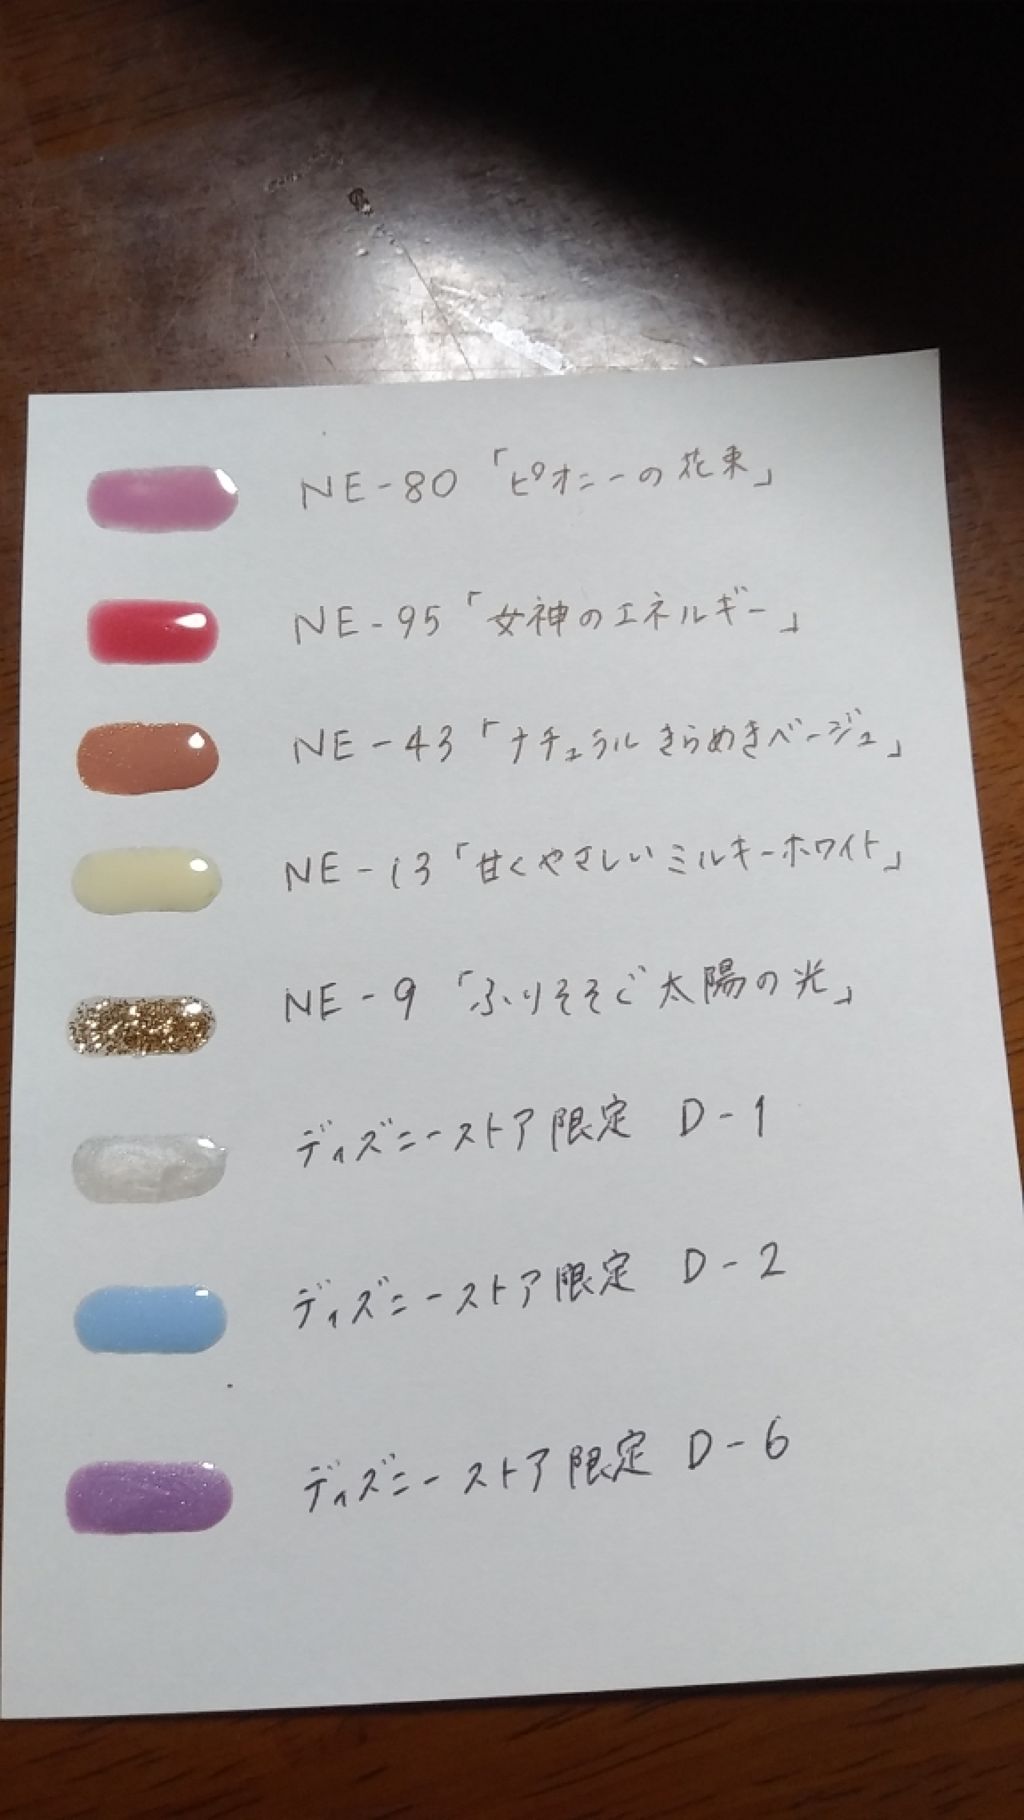 NE-80「ピオニーの花束」
NE-95「女神のエネルギー」
NE-43「ナチュラルきらめきベージュ」
NE-13「甘くやさしいミルキーホワイト」
NE-9「ふりそそぐ太陽の光」
ディズニーストア限定 D-1
ディズニーストア限定 D-2
ディズニーストア限定 D-6